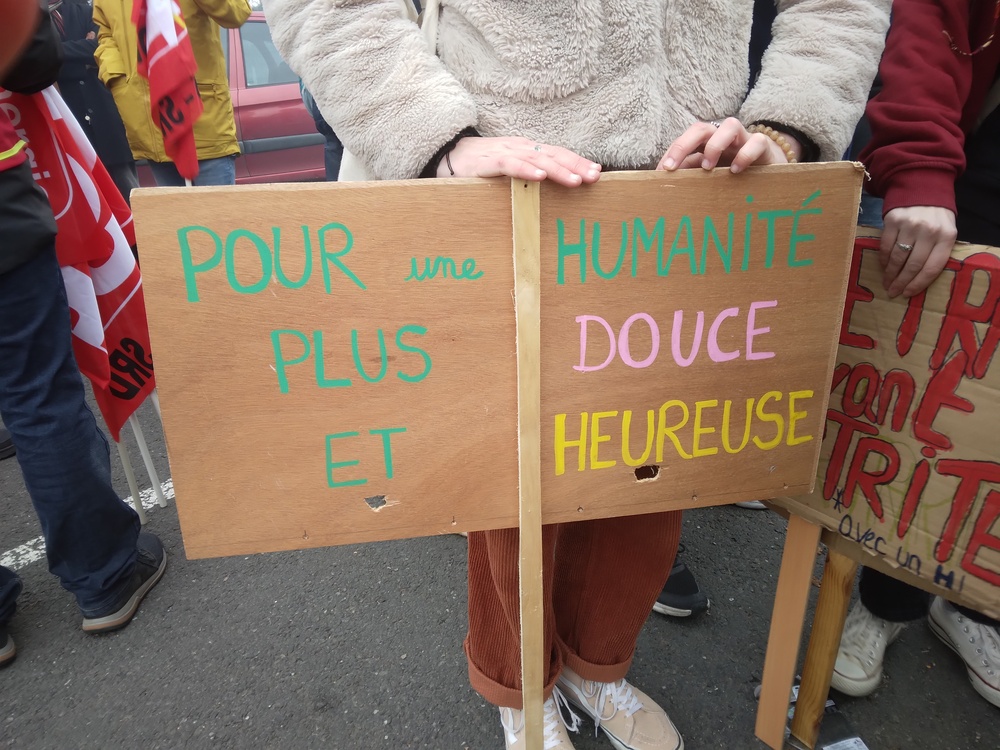 POUR une HUMANITÉ
PLUS DOUCE
ET HEUREUSE
ETR
TRITE
avec un H!